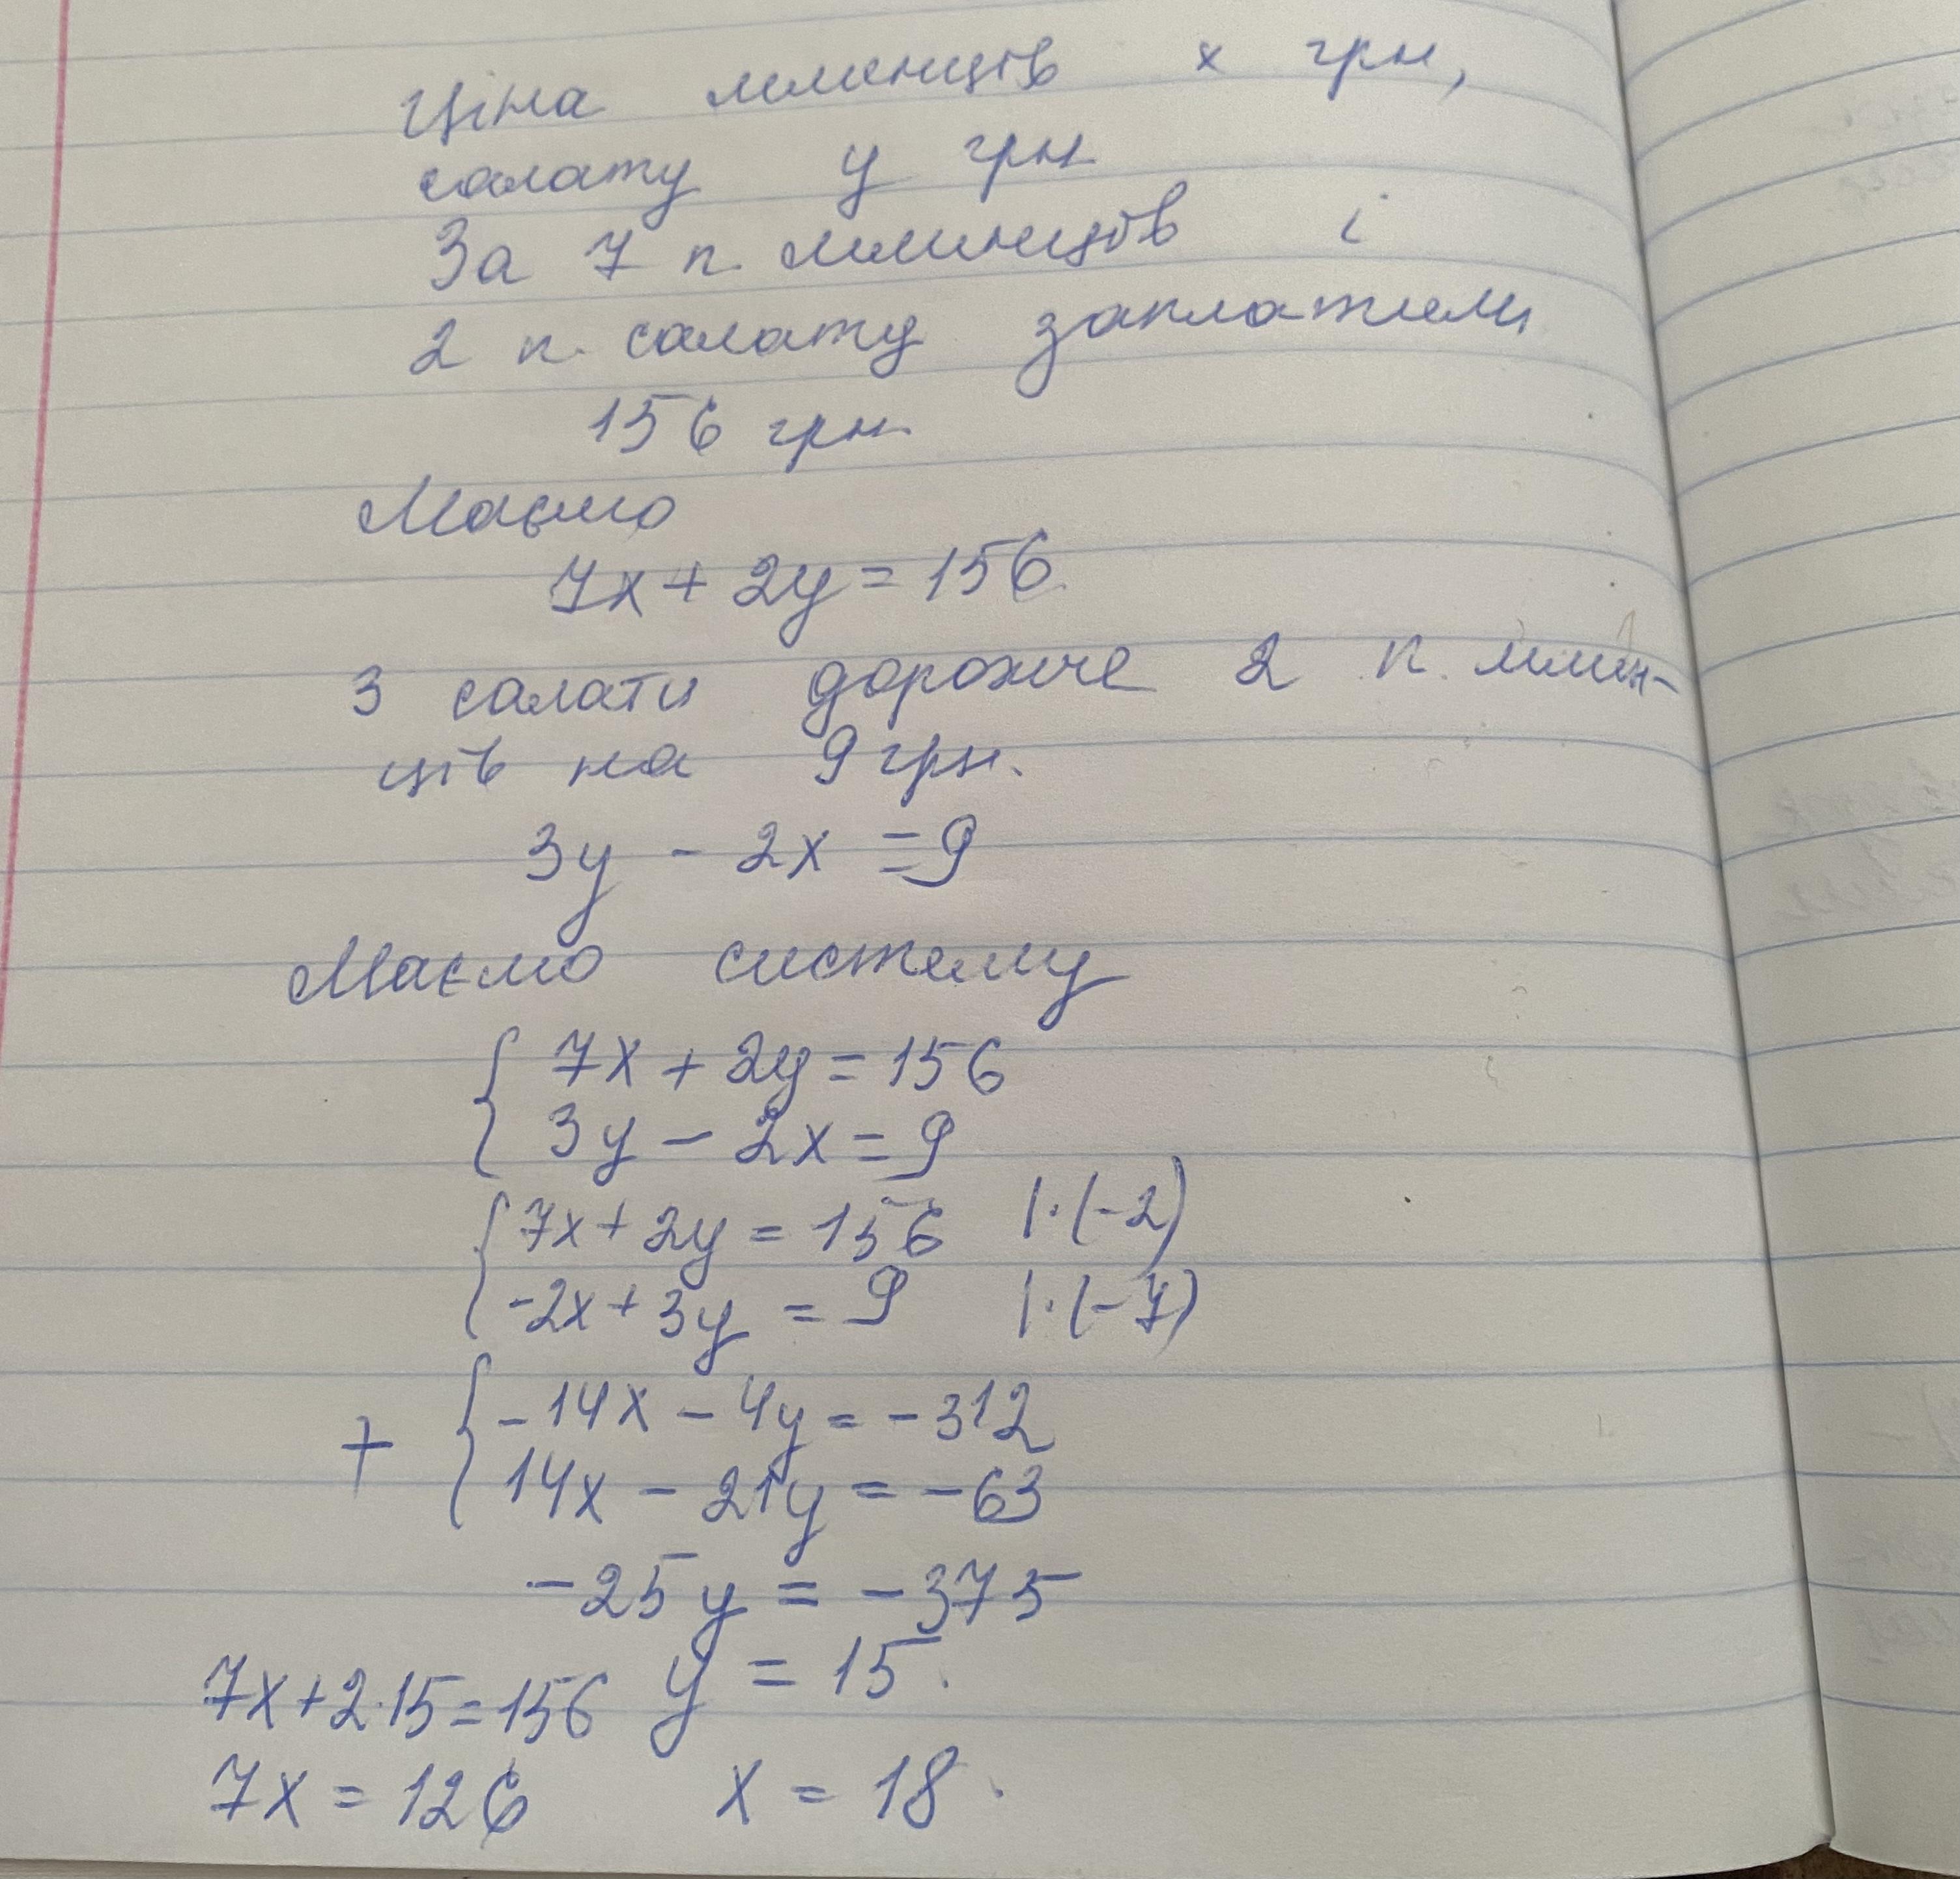 Ціна млинців x грн,
салату y грн
За 7 п. млинців і
2 п. салату заплатили
156 грн.
Маємо
7x + 2y = 156
3 салати дорожче 2 п. млин-
ців на 9 грн.
3y - 2x = 9
Маємо систему
7x + 2y = 156
3y - 2x = 9
7x + 2y = 156 |·(-2)
-2x + 3y = 9 |·(-7)
+ -14x - 4y = -312
14x - 21y = -63
-25y = -375
7x + 2·15 = 156 y = 15.
7x = 126 x = 18.